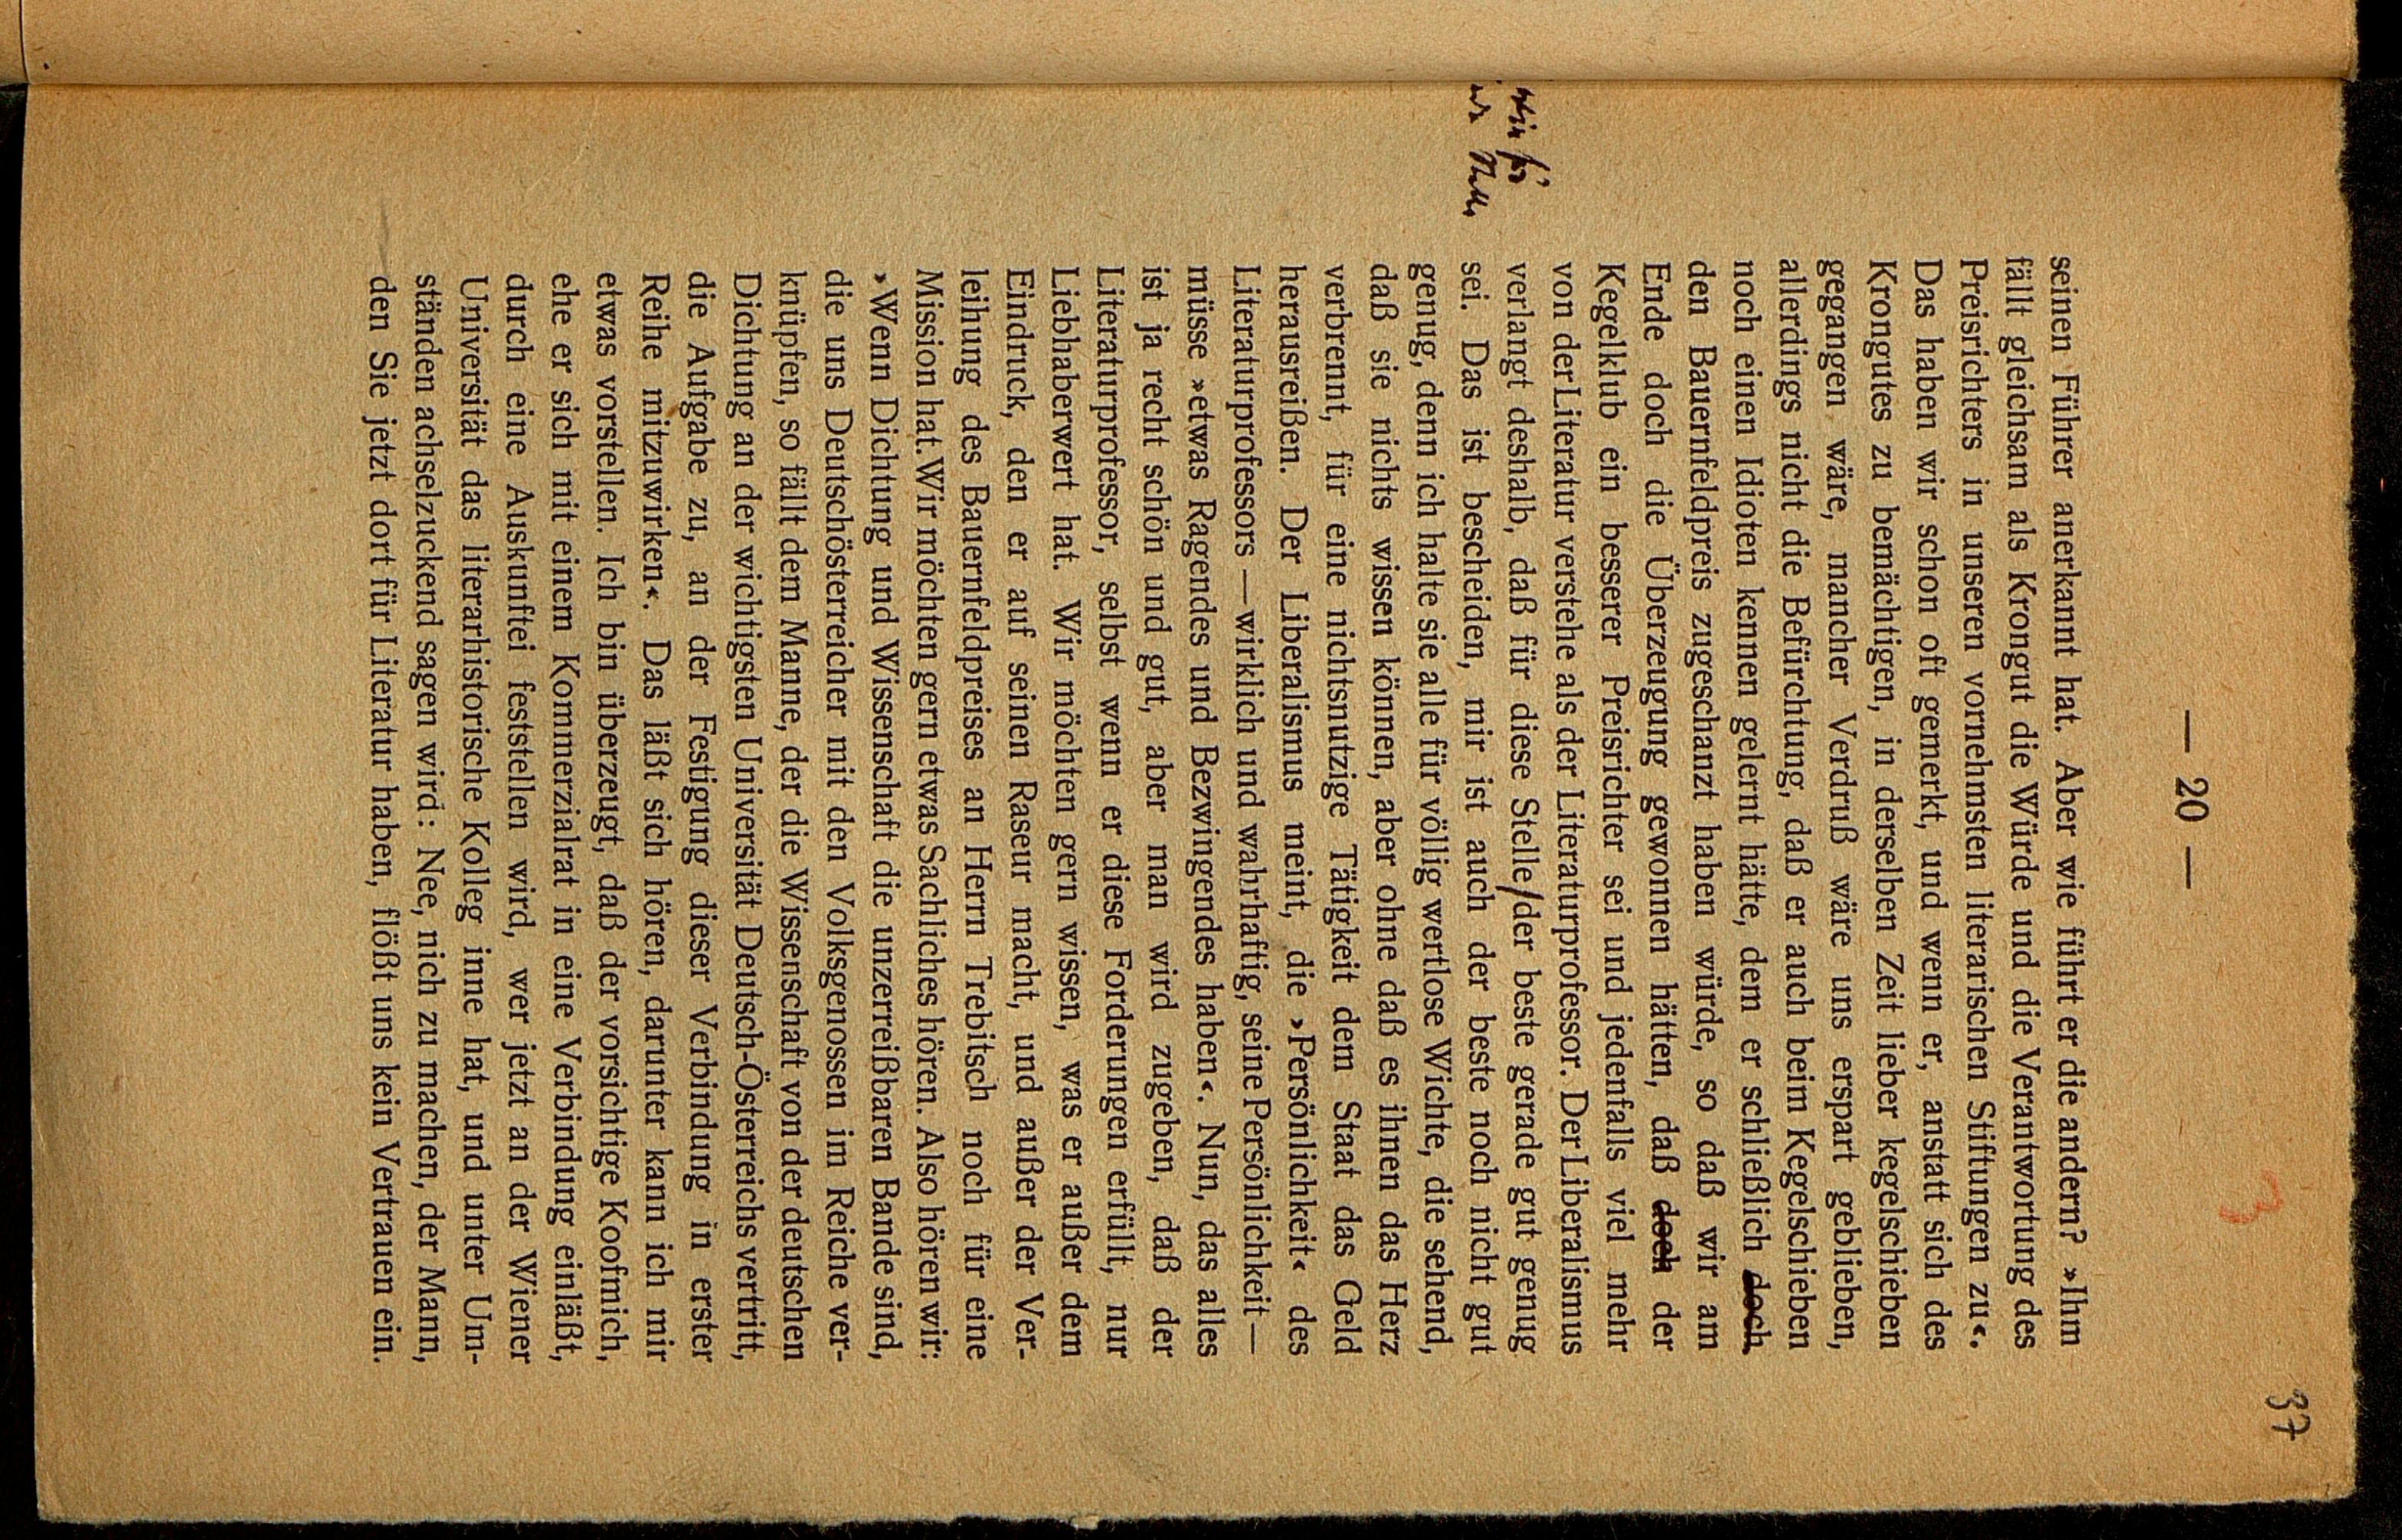 37
3
— 20 —
seinen Führer anerkannt hat. Aber wie führt er die andern? »Ihm
fällt gleichsam als Krongut die Würde und die Verantwortung des
Preisrichters in unseren vornehmsten literarischen Stiftungen zu«.
Das haben wir schon oft gemerkt, und wenn er, anstatt sich des
Krongutes zu bemächtigen, in derselben Zeit lieber kegelschieben
gegangen wäre, mancher Verdruß wäre uns erspart geblieben,
allerdings nicht die Befürchtung, daß er auch beim Kegelschieben
noch einen Idioten kennen gelernt hätte, dem er schließlich doch
den Bauernfeldpreis zugeschanzt haben würde, so daß wir am
Ende doch die Überzeugung gewonnen hätten, daß doch der
Kegelklub ein besserer Preisrichter sei und jedenfalls viel mehr
von der Literatur verstehe als der Literaturprofessor. Der Liberalismus
verlangt deshalb, daß für diese Stelle/der beste gerade gut genug
sei. Das ist bescheiden, mir ist auch der beste noch nicht gut
genug, denn ich halte sie alle für völlig wertlose Wichte, die sehend,
daß sie nichts wissen können, aber ohne daß es ihnen das Herz
verbrennt, für eine nichtsnutzige Tätigkeit dem Staat das Geld
herausreißen. Der Liberalismus meint, die ›Persönlichkeit‹ des
Literaturprofessors — wirklich und wahrhaftig, seine Persönlichkeit —
müsse »etwas Ragendes und Bezwingendes haben«. Nun, das alles
ist ja recht schön und gut, aber man wird zugeben, daß der
Literaturprofessor, selbst wenn er diese Forderungen erfüllt, nur
Liebhaberwert hat. Wir möchten gern wissen, was er außer dem
Eindruck, den er auf seinen Raseur macht, und außer der Ver-
leihung des Bauernfeldpreises an Herrn Trebitsch noch für eine
Mission hat. Wir möchten gern etwas Sachliches hören. Also hören wir:
»Wenn Dichtung und Wissenschaft die unzerreißbaren Bande sind,
die uns Deutschösterreicher mit den Volksgenossen im Reiche ver-
knüpfen, so fällt dem Manne, der die Wissenschaft von der deutschen
Dichtung an der wichtigsten Universität Deutsch-Österreichs vertritt,
die Aufgabe zu, an der Festigung dieser Verbindung in erster
Reihe mitzuwirken«. Das läßt sich hören, darunter kann ich mir
etwas vorstellen. Ich bin überzeugt, daß der vorsichtige Koofmich,
ehe er sich mit einem Kommerzialrat in eine Verbindung einläßt,
durch eine Auskunftei feststellen wird, wer jetzt an der Wiener
Universität das literarhistorische Kolleg inne hat, und unter Um-
ständen achselzuckend sagen wird: Nee, nich zu machen, der Mann,
den Sie jetzt dort für Literatur haben, flößt uns kein Vertrauen ein.